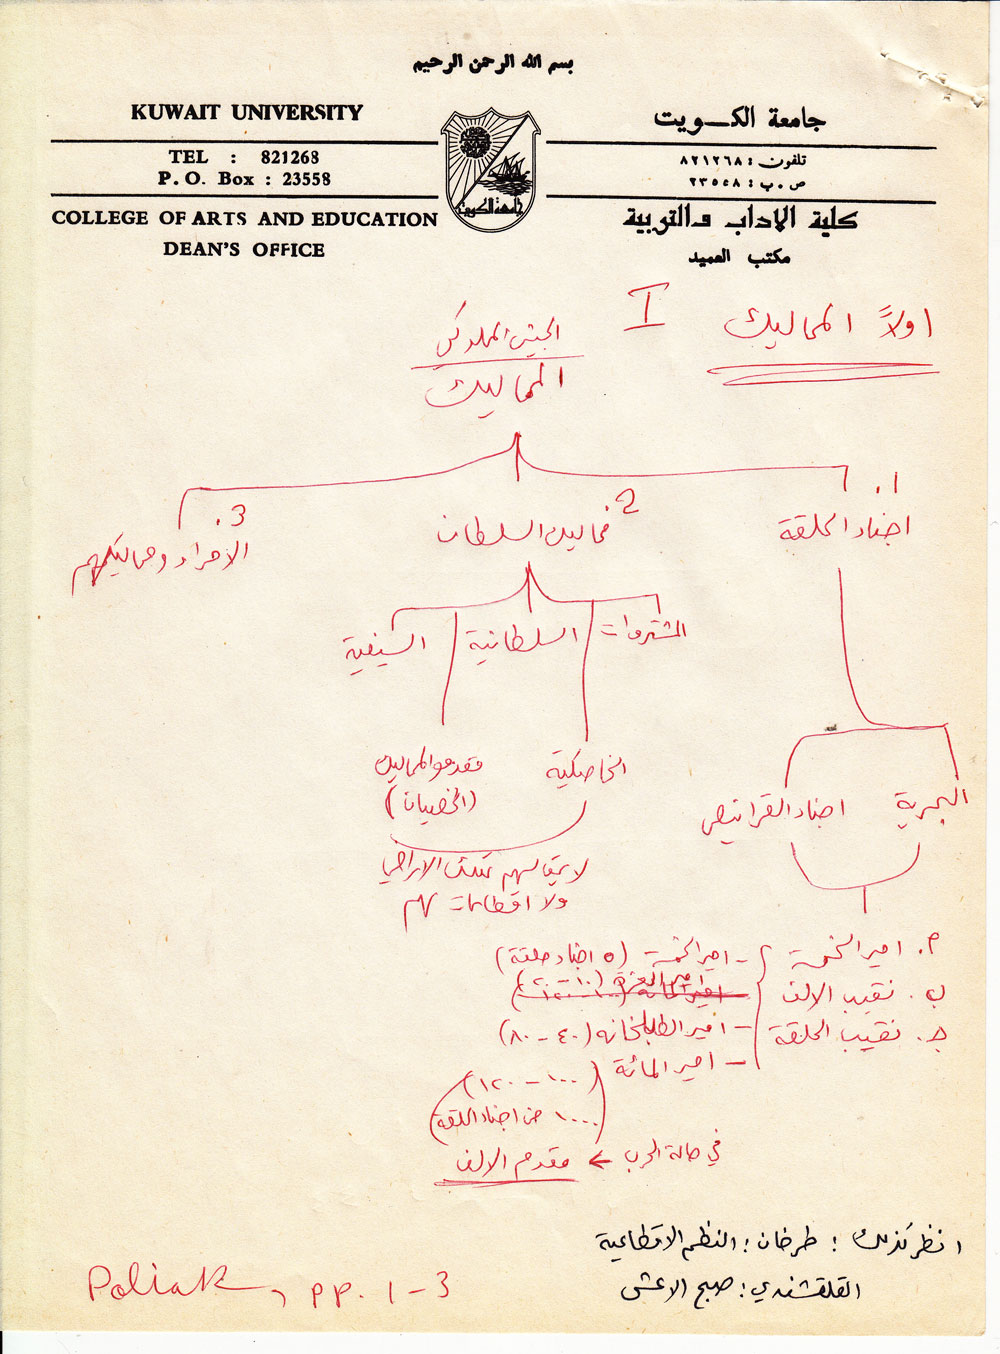 بسم الله الرحمن الرحيم
KUWAIT UNIVERSITY
جامعة الكـــويت
TEL : 821268
تلفون : ٨٢١٢٦٨
P. O. Box : 23558
ص . ب : ٢٣٥٥٨
COLLEGE OF ARTS AND EDUCATION
كلية الاداب والتربية
DEAN'S OFFICE
مكتب العميد
جامعة الكويت
اولاً المماليك
I
الجيش المملوكي
المماليك
1. اجناد الحلقة
2. مماليك السلطان
3. الامراء ومماليكهم
المشتروات
السلطانية
السيفية
الخاصكية
مقدمو المماليك
(الخصيان)
لا يحق لهم تملك الاراضي
ولا اقطاعات لهم
البحرية
اجناد القرانيص
م. امير الخمسة
ب. نقيب الالف
جـ. نقيب الحلقة
- امير الخمسة (٥ اجناد حلقة)
امير العشرة (١٠ - ٢٠)
- امير الطبلخانه (٤٠ - ٨٠)
- امير المائة
(١٠٠ - ١٢٠)
١٠٠٠ من اجناد الحلقة)
في حالة الحرب ← مقدم الالف
انظر كذلك : طرخان : النظم الاقطاعية
القلقشندي : صبح الاعشى
Poliak, pp. 1-3